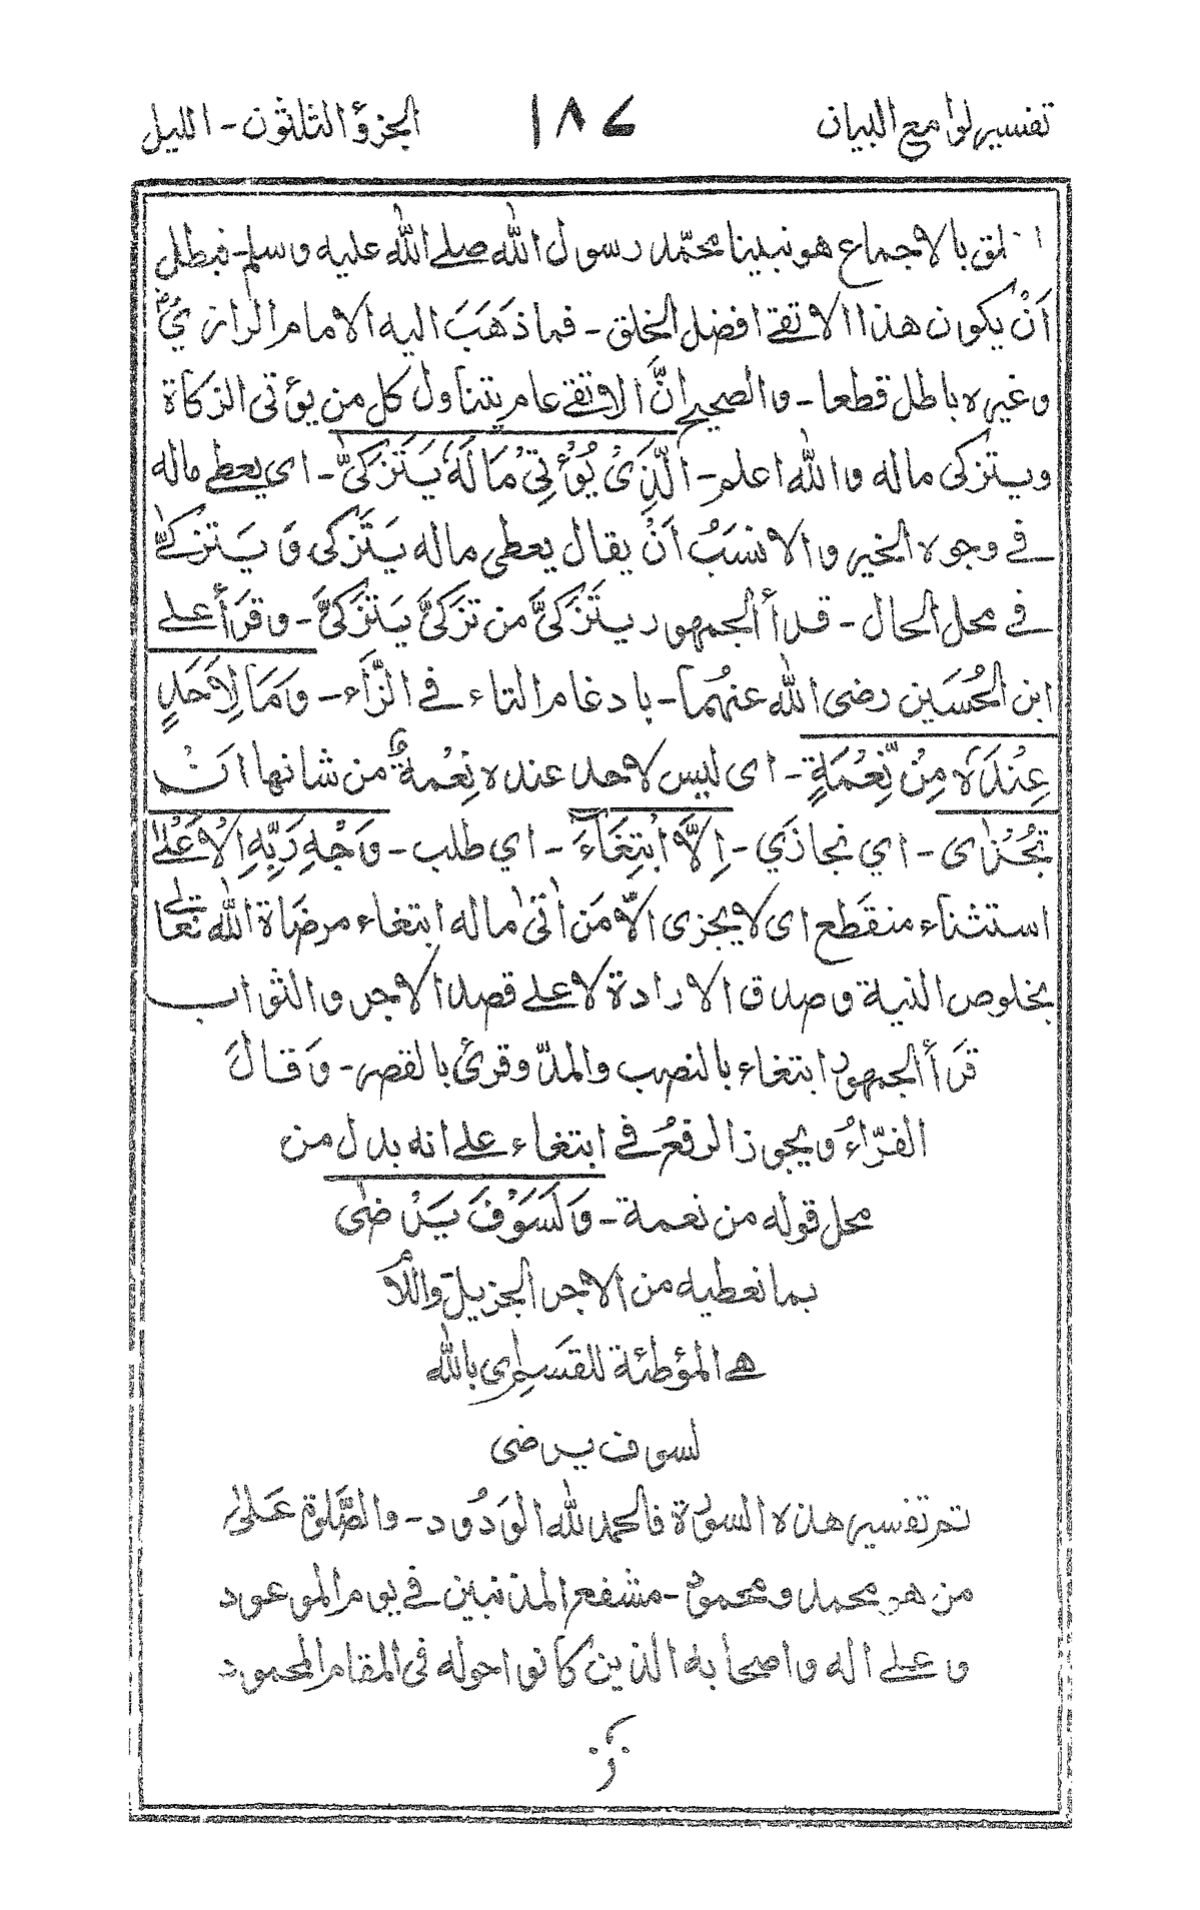 تفسير لوامع البيان ١٨٧ الجزؤ الثلثون - الليل
لق بالاجماع هو نبينا محمّد رسول الله صلے الله عليه وسلم - فبطل
اَنْ يكون هذا الاتقے افضل الخلق - فما ذهَبَ اليه الامام الرازيُّ
وغيره باطل قطعا - والصحيح انَّ الاتقے عام يتناول كل من يؤتى الزكاة
ويتزكى ماله والله اعلم - الَّذِىْ يُؤْتِيْ مَالَهٗ يَتَزَكّٰى - اى يعطے ماله
فے وجوه الخير والانسَبُ اَنْ يقال يعطى ماله يَتَزَكى وَ يَتزكےّٰ
فے محل الحال - قرأ الجمهور يتَزَكىَّ من تزَكىَّ يَتزَكىَّ - وقَرَأَ علے
ابن الحُسَين رضى الله عنهُما - بادغام التاء فے الزَّاء - وَمَا لِاَحَدٍ
عِنْدَهٗ مِنْ نِّعْمَةٍ - اى ليس لاحد عنده نِعْمةٌ من شانها ان
تُجْزٰاى - اي نجازَي - اِلَّا ابْتِغَآءَ - اي طلب - وَجْهِ رَبِّهِ الْاَعْلےٰ
استثناء منقَطع اى لا يجزى الّا مَن اٰتىٰ ماله ابتغاء مرضَاة الله تعالےٰ
بخلوص النية وصدق الارادة لا علے قصد الاجر والثواب
قرَأَ الجمهور ابتغاء بالنصب والمدّ وقرئ بالقصر - وَقَالَ
الفرّاءُ ويجوز الرفعُ فے ابتغاء علے انه بدل من
محل قوله من نعمة - وَلَسَوْفَ يَرْضٰى
بما نعطيه من الاجر الجزيل واللام
هے المؤطئة للقسَم اى بالله
لسوف يرضى
تم تفسير هذه السورة فالحمد لله الوَدُود - والصَّلوة عَلىٰ
من هو محمد ومحمود - مشفع المذنبين فے يوم الموعود
وعلے اله واصحابه الذين كانوا حوله فى المقام المحمود